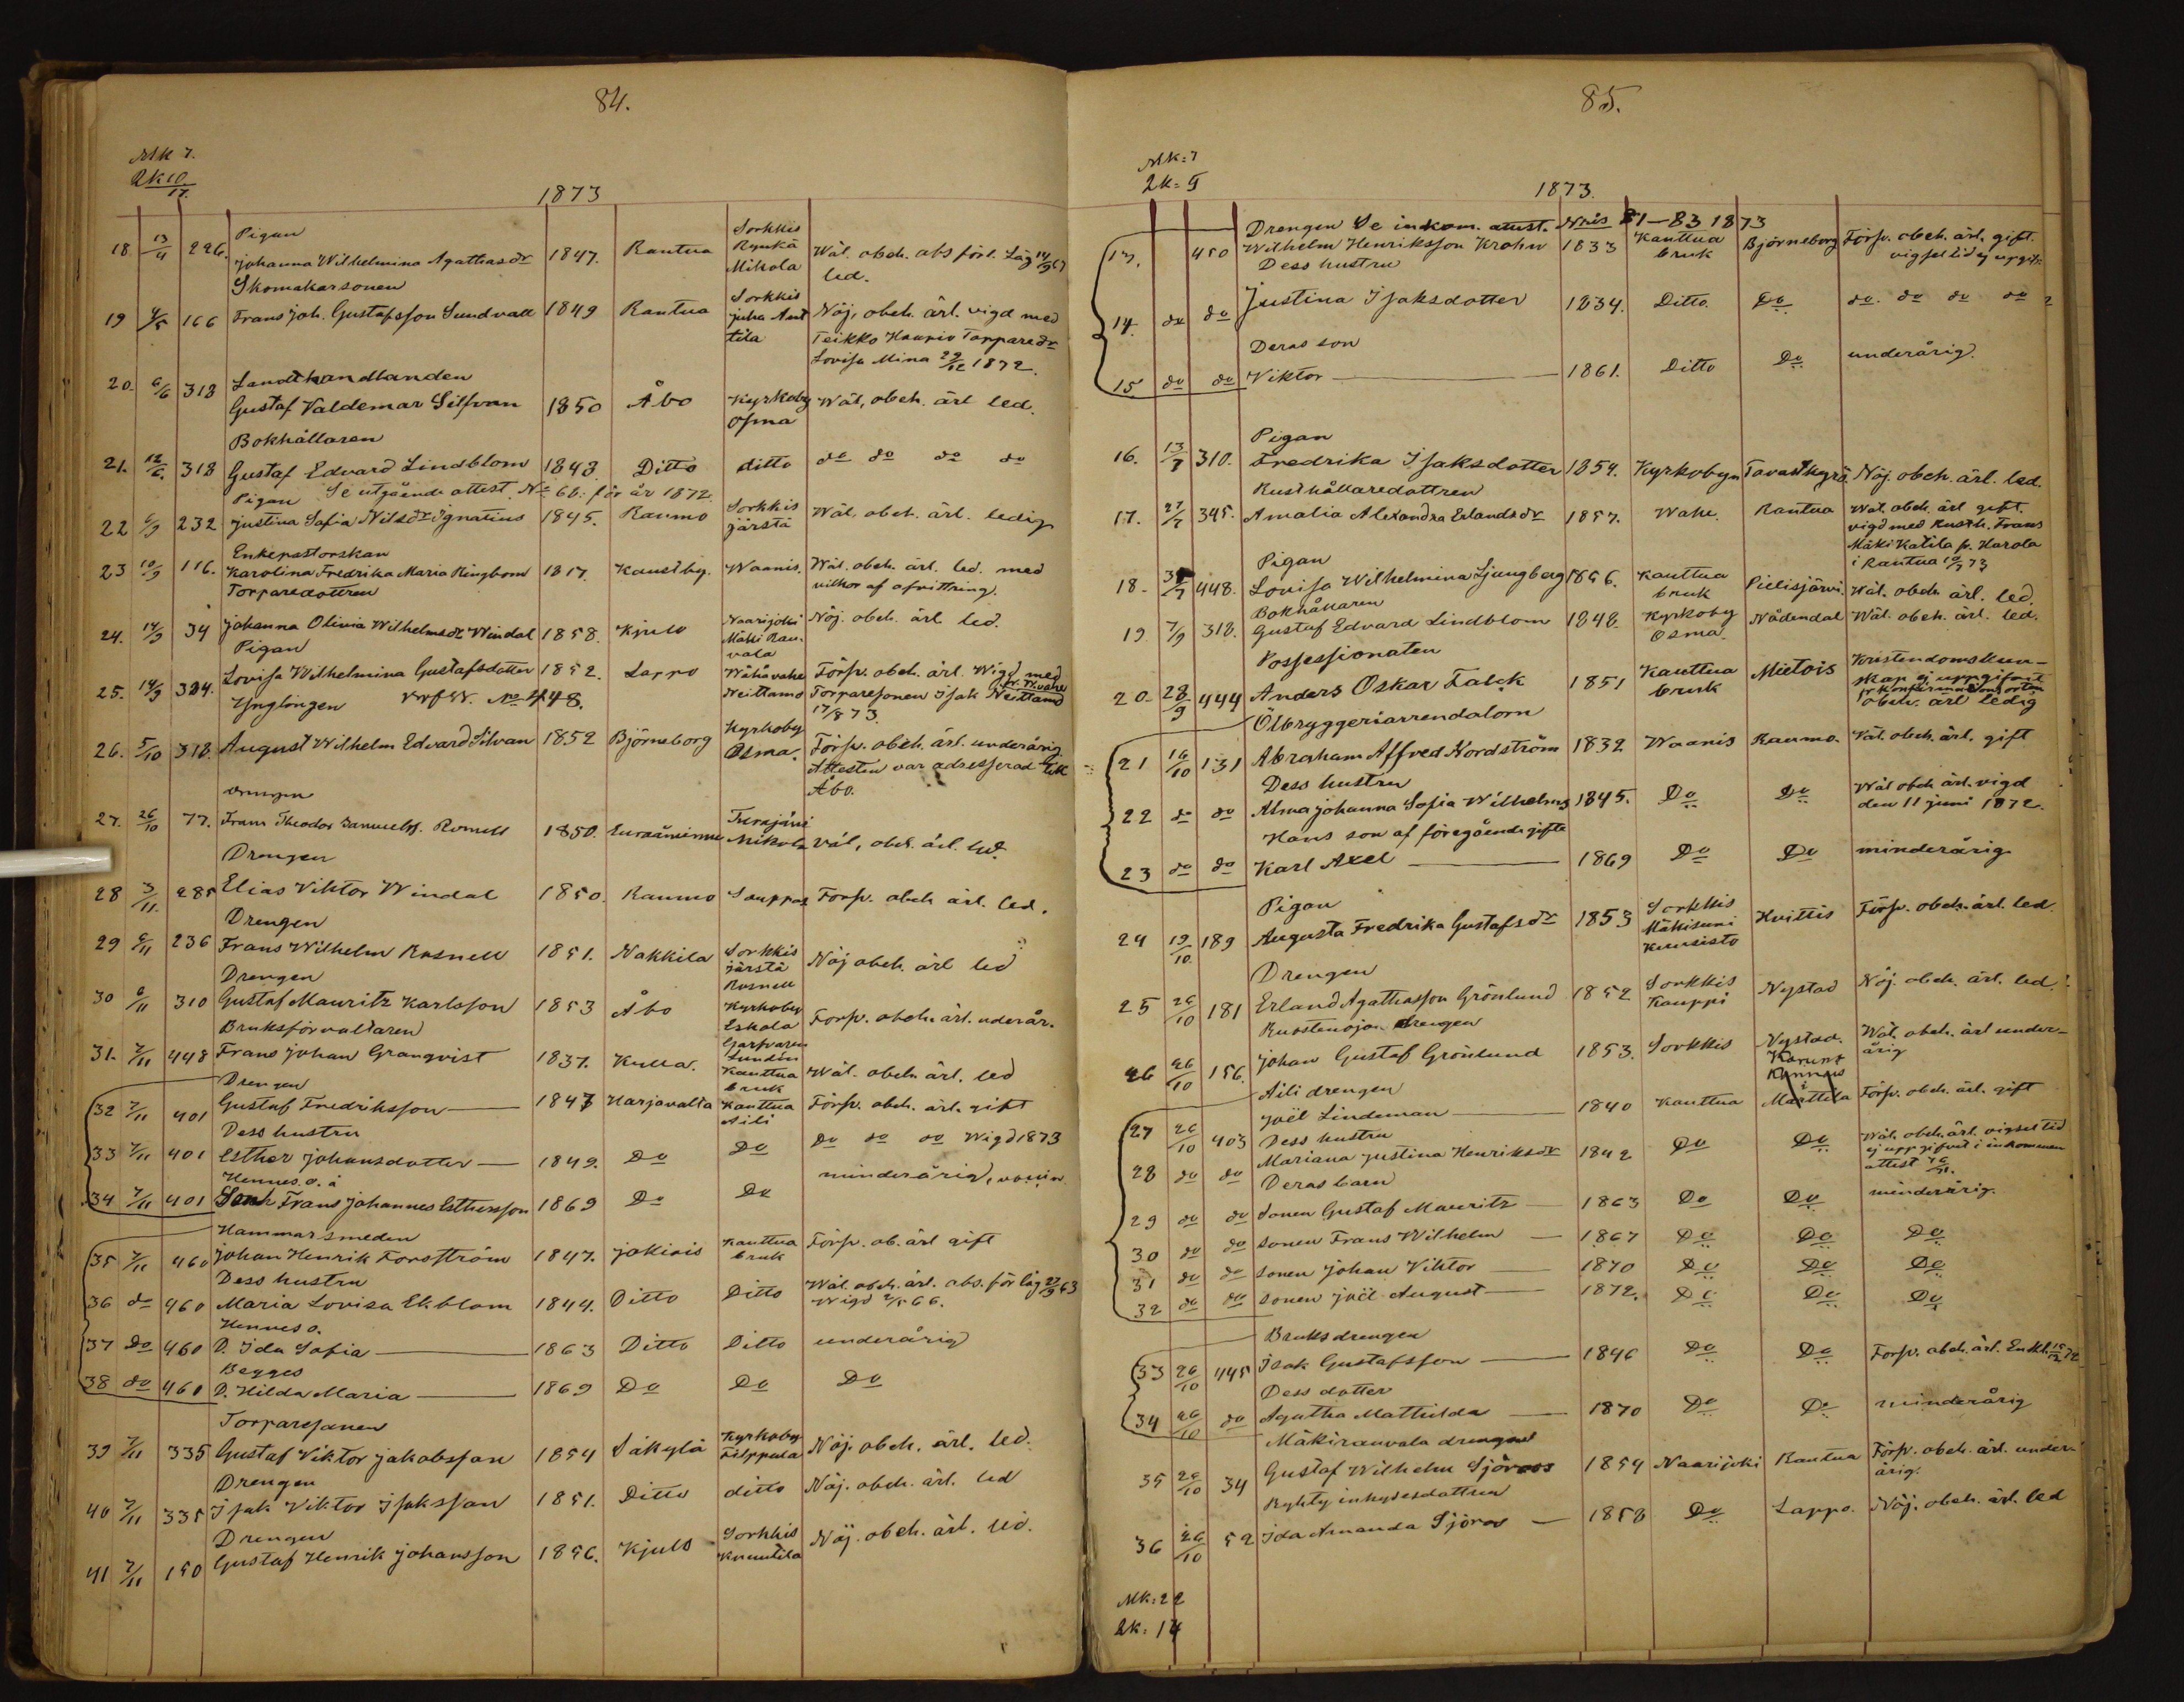 84.
Mk 7.
2k 10
17.
1873
Pigan
18 13/4 226. Johanna Wilhelmina Agathasdr 1847. Rantua Sorkkis Mikola Wäl. obeh. abs förl. Låg 14/9 67
led.
Skomakarsonen
19 4/5 166 Frans Joh. Gustafsson Sundvall 1849 Rantua Sorkkis Juha Anttila Nöj. obeh. ärl. vigd med
Teikko Haapio Torparedr
Lovisa Mina 29/12 1872.
Landthandlanden
20. 6/6 318 Gustaf Valdemar Silfvan 1850 Åbo Kyrkoby Osma Wäl, obeh. ärl led.
Bokhållaren
21. 12/6. 318 Gustaf Edvard Lindblom 1848 Ditto ditto do do do do
Pigan Se utgående attest No 60: för år 1872.
22 6/9 232 Justina Sofia Nilsdr Ignatius 1845. Raumo Sorkkis järstä Wäl. obeh. ärl. ledig
Enkepastorskan
23 10/9 116. Karolina Fredrika Maria Ringbom 1817. Kaustby. Waanis. Wäl. obeh. ärl. led. med
vilkor af afvittring.
Torparedottren
24. 14/9 34 Johanna Olivia Wilhelmsdr Windal 1858. Kjulo Naarijoki Mäki Rauvala Nöj. obeh. ärl led.
Pigan
25. 14/9 324. Lovisa Wilhelmina Gustafsdotter 1852. Lappo Wähävahe Neittamo Försv. obeh. ärl. Wigd med
Torparesonen Isak Neittamo
17/8 73.
Ynglingen No 448.
26. 5/10 318. August Wilhelm Edvard Silvan 1852 Björneborg Kyrkoby Osma. Försv. obeh. ärl. underårig
Attesten var adresserad till
Åbo.
Drengen
27. 26/10 77. Frans Theodor Samuelss. Romell 1850. Euraåminne Turajärvi Mikola Väl, obeh. ärl. led.
Drengen
28 3/11. 285 Elias Viktor Windal 1850. Raumo Sauppas Försv. obeh. ärl. led.
Drengen
29 6/11 236 Frans Wilhelm Rosnell 1851. Nakkila Sorkkis järstä Rosnell Nöj obeh. ärl led
Drengen
30 6/11 310 Gustaf Mauritz Karlsson 1853 Åbo Kyrkoby Eskola Försv. obeh. ärl. underår.
Garfvaren Lundén
Bruksförvaltaren
31. 7/11 448 Frans Johan Granqvist 1837. Kulla. Kauttua bruk Wäl. obeh. ärl. led
Drengen
32 7/11 401 Gustaf Fredriksson 1847 Harjavalta Kauttua Aili Försv. obeh. ärl. gift
Dess hustru
33 7/11 401 Esther Johansdotter 1849. Do Do Do do do Wigd 1873
Hennes o. ä
34 7/11 401 Son Frans Johannes Esthersson 1869 Do Do minderårig,
Hammarsmeden
35 7/11 460 Johan Henrik Forsström 1847. Jokiois Kauttua bruk Försv. ob. ärl gift
Dess hustru
36 do 460 Maria Lovisa Ekblom 1844. Ditto Ditto Wäl. obeh. ärl. abs. för läg 27/9 63
Wigd 2/5 66.
Hennes o.
37 Do 460 D. Ida Sofia 1863 Ditto Ditto underårig
Begges
38 do 460 D. Hilda Maria 1869 Do Do Do
Torparesonen
39 7/11 335 Gustaf Viktor Jakobsson 1854 Säkylä Kyrkoby Filppula Nöj. obeh. ärl. led.
Drengen
40 7/11 335 Isak Viktor Isaksson 1851. Ditto ditto Nöj. obeh. ärl. led
Drengen
41 7/11 150 Gustaf Henrik Johansson 1856. Kjulo Sorkkis Knuutila Nöj. obeh. ärl. led.
85.
Mk: 7
2k= 9
1873.
Drengen Se inkom. attest. Nris 81–83 1873
13. 450 Wilhelm Henriksson Krohn 1833 Kauttua bruk Björneborg Försv. obeh. ärl. gift.
vigsel tid ej uppgifv.
Dess hustru
14. do do Justina Isaksdotter 1834. Ditto Do do. do do do
Deras son
15 do do Viktor 1861. Ditto Do underårig.
Pigan
16. 13/7 310. Fredrika Isaksdotter 1854. Kyrkobyn Tavastkyrö Nöj. obeh. ärl. led.
Rusthållaredottren
17. 27/7 345. Amalia Alexandra Erlandsdr 1857. Wahe. Rantua Wäl. obeh. ärl gift.
vigd med Rusth. Frans
Mäki Katila fr. Harola
i Rantua 73
Pigan
18. 448. Lovisa Wilhelmina Ljungberg 1856. Kauttua bruk Pielisjärvi. Wäl. obeh ärl. led.
Bokhållaren
19. 7/9 318. Gustaf Edvard Lindblom 1848. Kyrkoby Osma. Nådendal Wäl. obeh. ärl. led.
Possessionaten
20. 28/9 444 Anders Oskar Falck 1851 Kauttua bruk Mietois Kristendomskun-
skap ej uppgifvit
fr konfirmations orten
obeh. ärl ledig
Ölbryggeriarrendatorn
21 16/10 131 Abraham Affred Nordström 1832 Waanis Raumo. Wäl. obeh. ärl. gift
Dess hustru
22 do do Alma Johanna Sofia Wilhelms 1845. Do Do Wäl obeh ärl. vigd
den 11 juni 1872.
Hans son af föregående gifte
23 do do Karl Axel 1869 Do Do minderårig
Pigan
24 19/10 189 Augusta Fredrika Gustafsdr 1853 Sorkkis Mäkisuni Kuusisto Hvittis Försv. obeh. ärl. led.
Drengen
25 26/10 181 Erland Agathasson Grönlund 1852 Sorkkis Kauppi Nystad Nöj. obeh. ärl. led.
Ruostenoja drengen
26 26/10 156. Johan Gustaf Grönlund 1853. Sorkkis Nystad. Wäl. obeh. ärl under-
årig
Aili drengen
27 26/10 403 Joël Lindeman 1840 Kauttua Marttila Försv. obeh. ärl. gift
Dess hustru
28 do do Mariana Justina Henriksdr 1842 Do Do Wäl. obeh. ärl. vigsel tid
ej uppgifvit i inkommen
attest
Deras barn
29 do do Sonen Gustaf Mauritz 1863 Do Do minderårig.
30 do do sonen Frans Wilhelm 1867 Do Do Do
31 do do sonen Johan Viktor 1870 Do Do Do
32 do do sonen Joël August 1872. Do Do Do
Bruksdrengen
33 26/10 445 Isak Gustafsson 1846 Do Do Försv. obeh. ärl. Enkl.
Dess dotter
34 26/10 do Agatha Mathilda 1870 Do Do minderårig
Mäkirauvala drengen
35 26/10 34 Gustaf Wilhelm Sjöroos 1854 Naarijoki Rantua Försv. obeh. ärl. under-
årig.
Ryhty inhysesdottren
36 26/10 52 Ida Amanda Sjöros 1858 Do Lappo. Nöj. obeh. ärl. led
Mk: 22
2k: 14